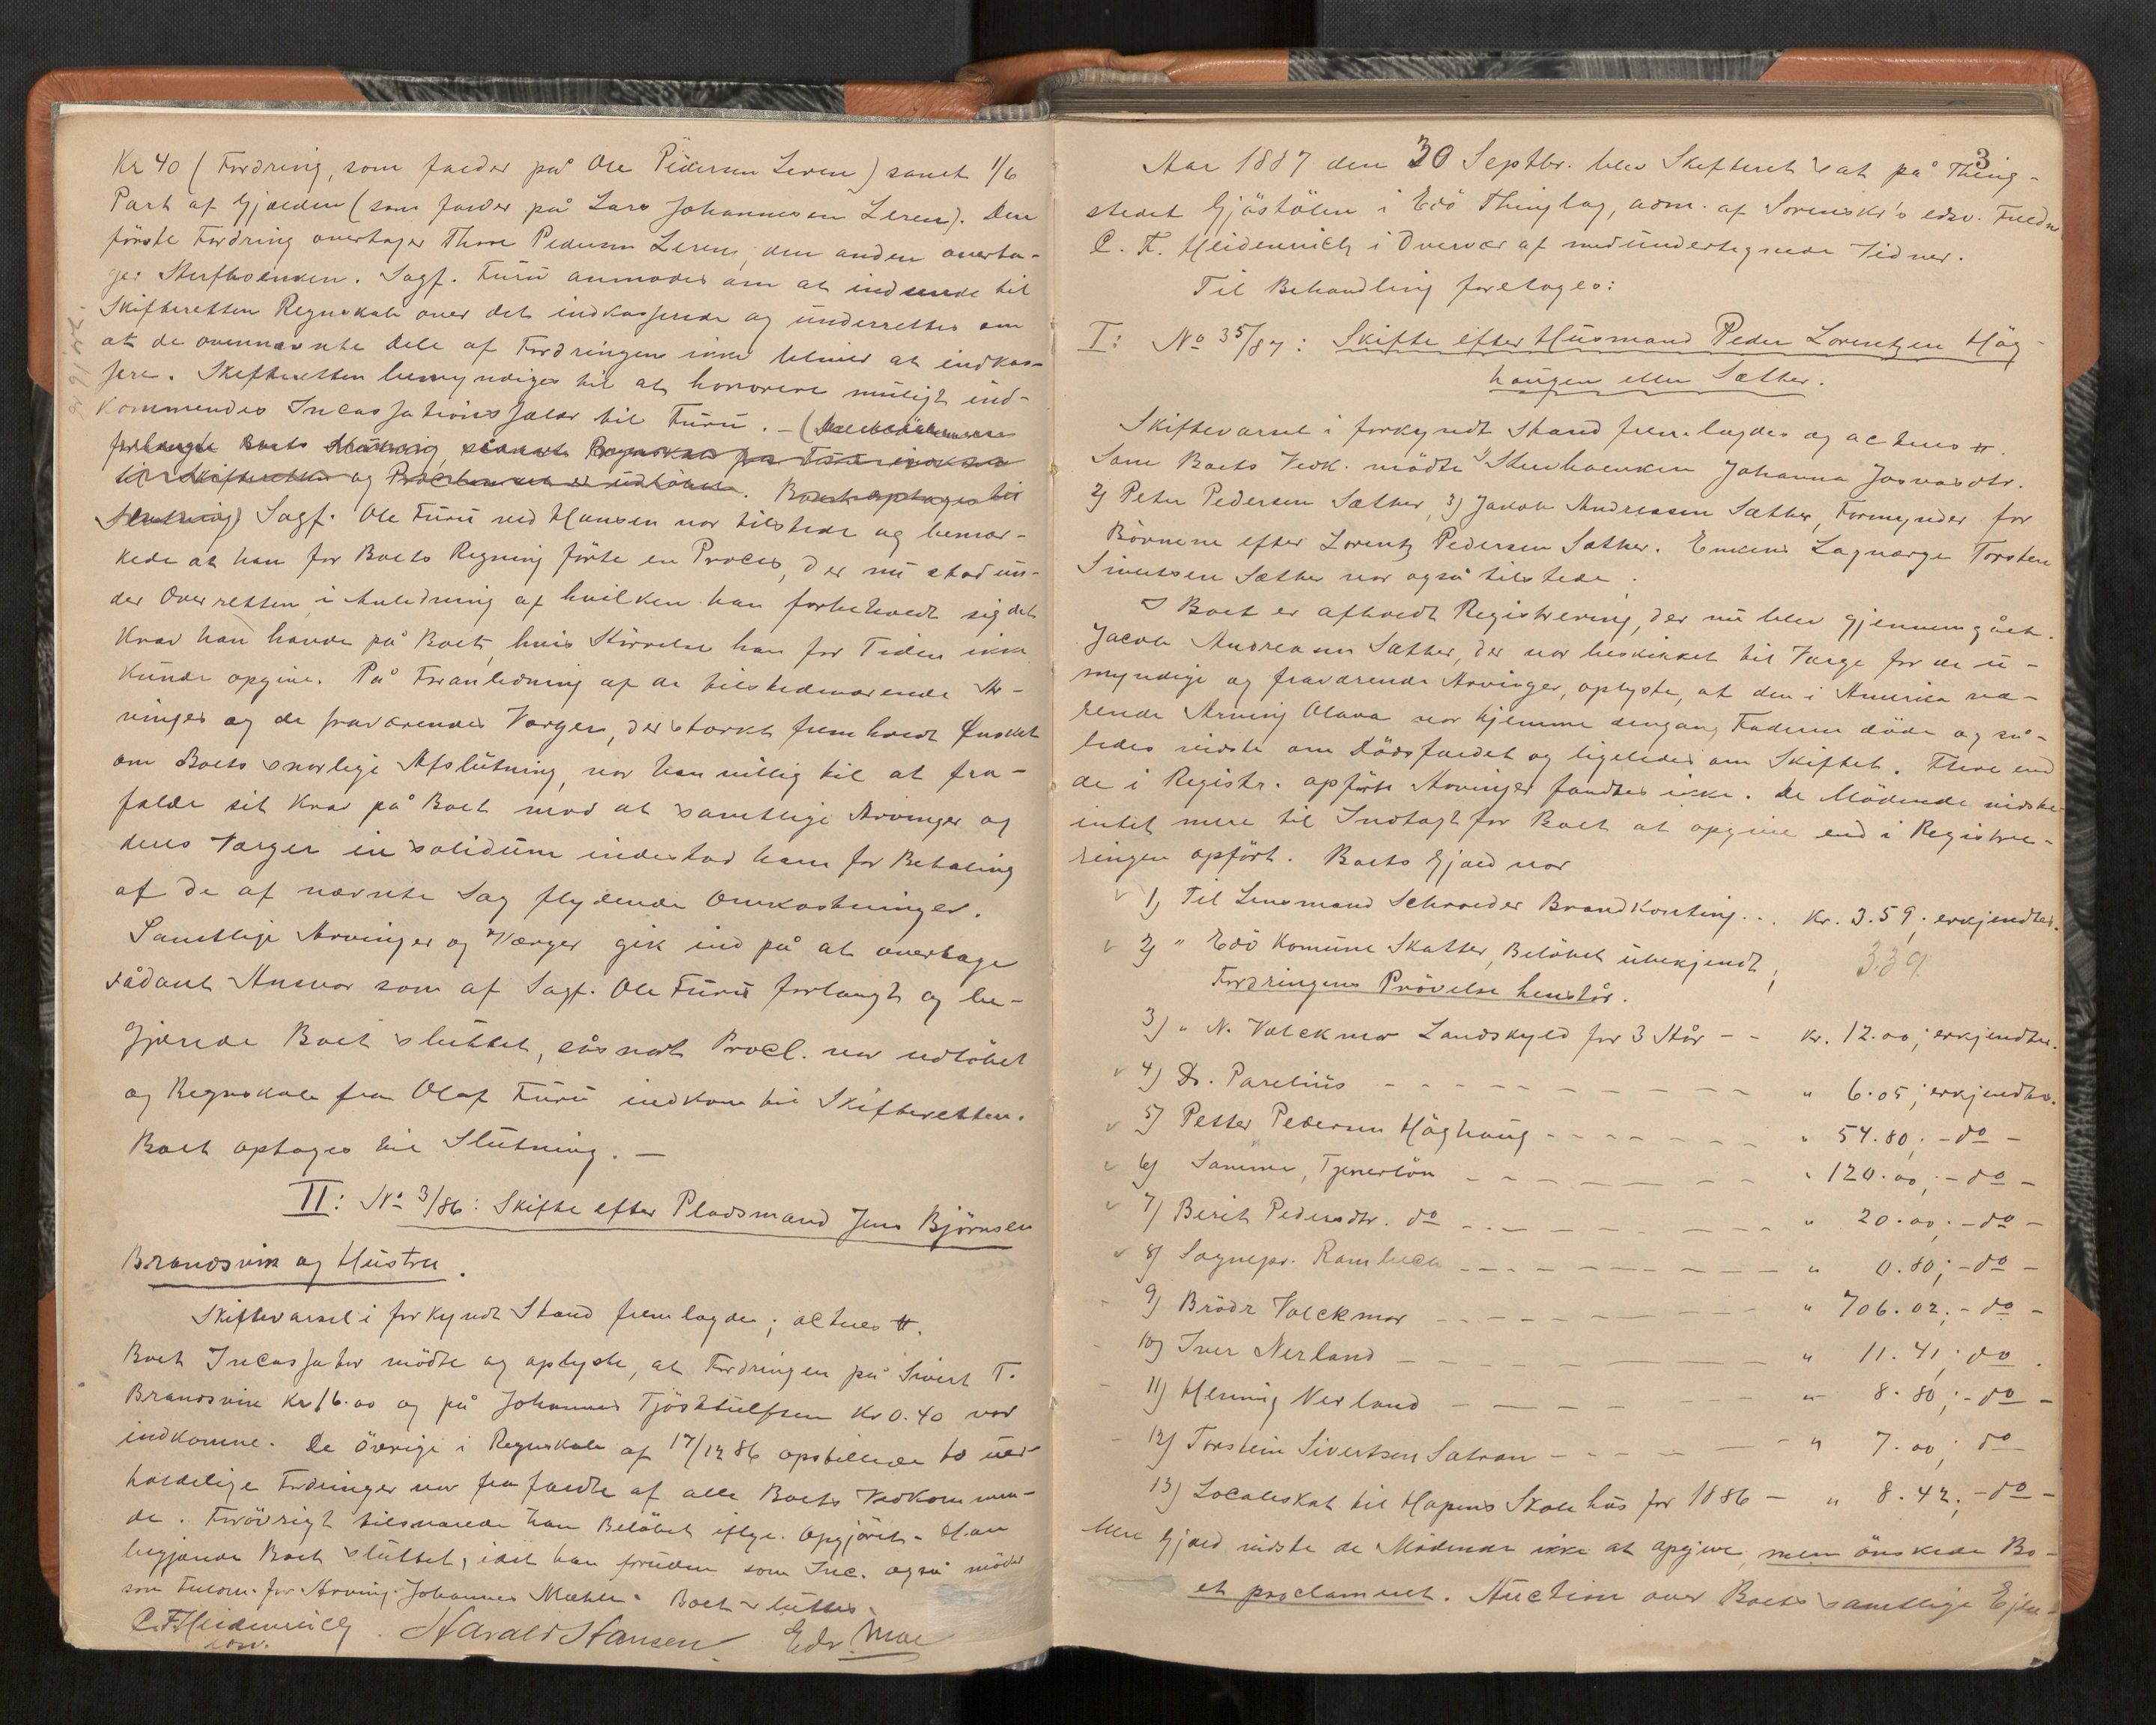 Kr 40 (Fordring, som falder på Ole Pedersen Leren) samt 1/6
Part af Gjælden (som falder på Lars Johannesen Leren). Den
første Fordring overtager Thore Pedersen Leren, den anden overta-
ger Stervboenken. Sagf. Furu anmodes om at indsende til
Skifteretten Regnskab over det indkasserede og underrettes om
at de ovennævnte Dele af Fordringen ikke bliver at indkas-
sere. Skifteretten bemyndiges til at honorere muligt ind-
kommendes Incassationssalær til Furu. – (De Mødende
forlangte Boets Slutning, såsnart Regnskab fra Furu indkom
til Skifteretten og Proclama er udløbet. Boet optages til
Slutning) Sagf. Ole Furu ved Hansen var tilstede og bemær-
kede at han for Boets Regning førte en Proces, der nu stod un-
der Overretten i Anledning af hvilken han forbeholdt sig det
Krav han havde på Boet, hvis Størrelse han for Tiden ikke
kunde opgive. På Foranledning af de tilstedeværende Ar-
vinger og de fraværendes Værger, der stærkt fremholdt Ønsket
om Boets snarlige Afslutning, var han villig til at fra-
falde sit Krav på Boet mod at samtlige Arvinger og
deres Værger in solidum indestod ham for Betaling
af de af nævnte Sag flydende Omkostninger.
Samtlige Arvinger og Værger gik ind på at overtage
sådant Ansvar som af Sagf. Ole Furu forlangt og be-
gjærede Boet sluttet, såsnart Procl. var udløbet
og Regnskab fra Olaf Furu indkom til Skifteretten.
Boet optages til Slutning. –
II: No 3/86: Skifte efter Pladsmand Jens Bjørnsen
Brandsvik og Hustru.
Skiftevarsel i forkyndt Stand fremlagdes; acteres #.
Boets Incassator mødte og oplyste, at Fordringen på Sivert T.
Brandsvik Kr 16.00 og på Johannes Tjøstulfsen Kr 0.40 var
indkomne. De øvrige i Regnskab af 17/12 86 opstillede to uer-
holdelige Fordringer var frafaldte af alle Boets Vedkommen-
de. Forøvrigt tilsvarede han Beløbet iflge. Opgjøret. Han
begjærede Boet sluttet, idet han foruden som Inc. også møder
som Fuldm. for Arving Johannes Mæhle. Boet sluttes.
C.F. Heidenreich. Harald Hansen Edv. Moe
const.
3
Aar 1887 den 30 Septbr. blev Skifteret sat på Thing-
stedet Gjøstølen i Edø Thinglag, adm. af Sorenskr's edsv. Fuldm.
C. F. Heidenreich i Overvær af medundertegnede Vidner.
Til Behandling foretages:
I: No 35/87: Skifte efter Husmand Peder Lorentzen Høg-
haugen eller Sæther.
Skiftevarsel i forkyndt Stand fremlagdes og acteres #.
Som Boets Vedk. mødte 1) Stervboenken Johanna Jonasdtr.
2) Peter Pedersen Sæther, 3) Jacob Andreasen Sæther, Formynder for
Børnene efter Lorentz Pedersen Sæther. Enkens Lagværge Torsten
Sivertsen Sæther var også tilstede.
I Boet er afholdt Registrering, der nu blev gjennemgået.
Jacob Andreasen Sæther, der var beskikket til Værge for de u-
myndige og fraværende Arvinger, oplyste, at den i America væ-
rende Arving Olava var hjemme dengang Faderen døde og så-
ledes vidste om Dødsfaldet og ligeledes om Skiftet. Flere end
de i Registr. opførte Arvinger fandtes ikke. De Mødende vidste
intet mere til Indtægt for Boet at opgive end i Registre-
ringen opført. Boets Gjæld var
1) Til Lensmand Schrøder Brandkonting... Kr. 3.59; erkjendtes.
2) " Edø Komune Skatter, Beløbet ubekjendt; 3.39
Fordringens Prøvelse henstår.
3) " N. Volckmar Landskyld for 3 År - - Kr. 12.00; erkjendtes.
4) Dr. Parelius - - - - " 6.05; erkjendtes.
5) Petter Pedersen Høghaug - - - - " 54.80; - do -
6) Samme, Tjenerløn - - - - " 120.00; - do -
7) Berit Pedersdtr. do - - - - " 20.00; - do -
8) Sognepr. Rambech - - - - " 0.80; - do -
9) Brødr Volckmar - - - - " 706.02; - do -
10) Iver Nerland - - - - " 11.41; do.
11) Henning Nerland - - - - " 8.80; - do -
12) Torstein Sivertsen Sætran - - - - " 7.00; do
13) Localeskat til Hopens Skolehus for 1886 - " 8.42; - do -
Mere Gjæld vidste de Mødende ikke at opgive, men ønskede Bo-
et proclameret. Auction over Boets samtlige Ejen-